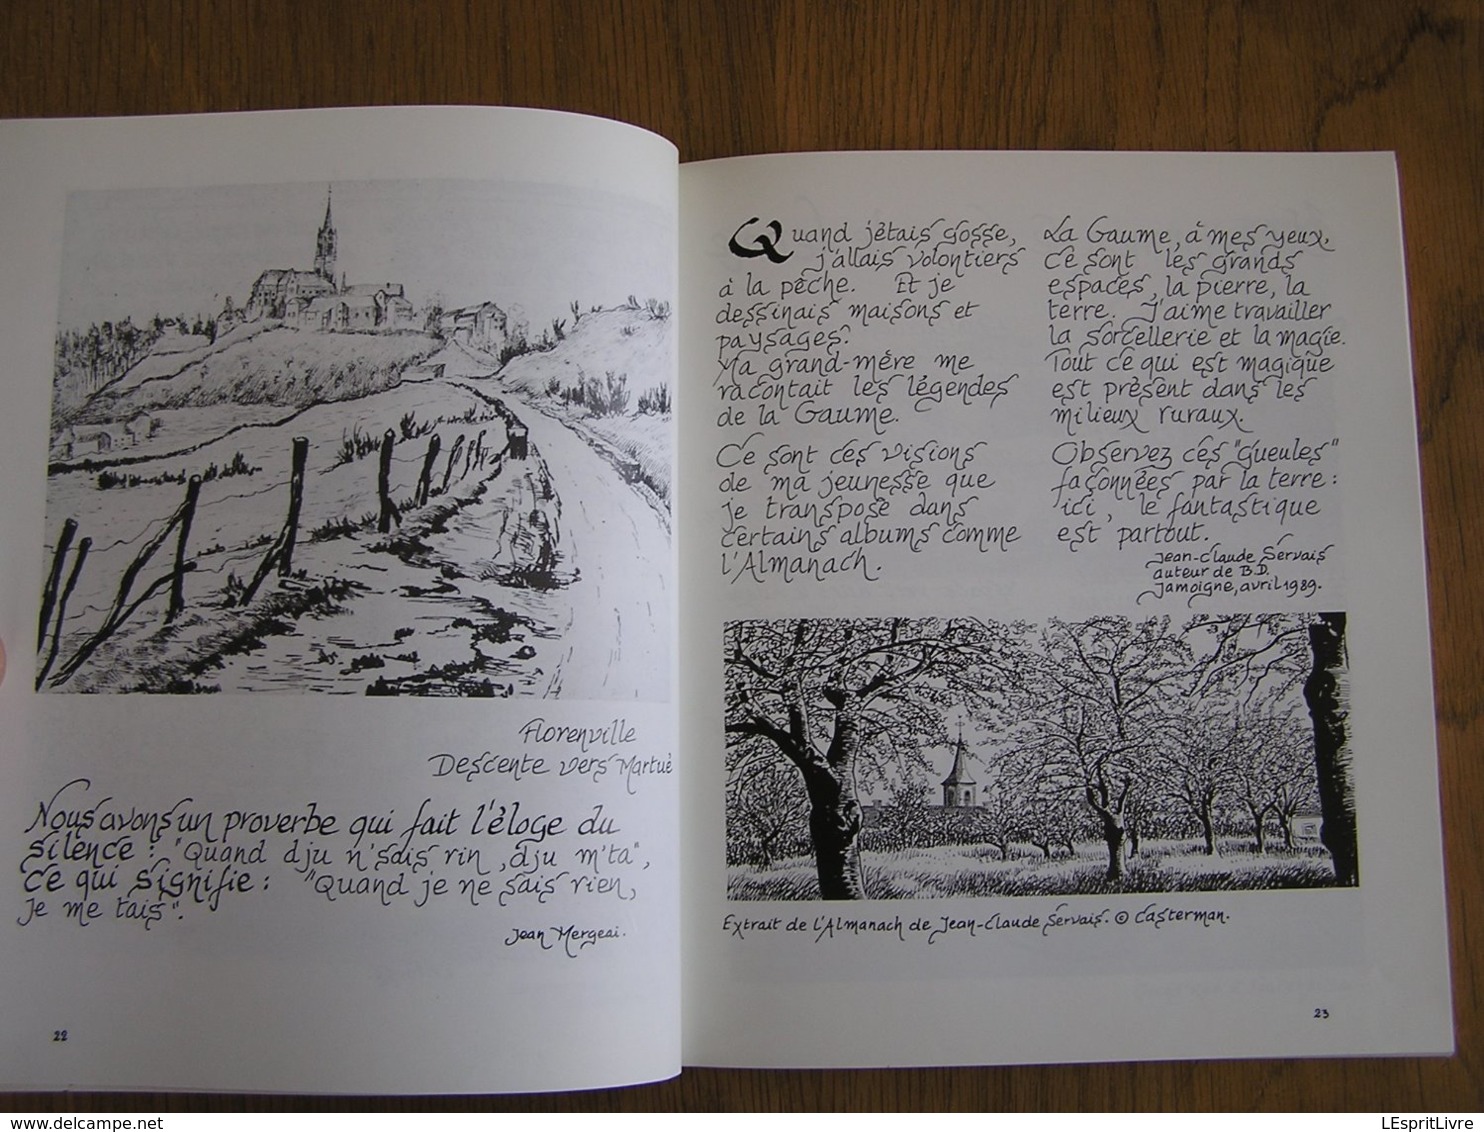 Florenville
Descente vers Martué
Nous avons un proverbe qui fait l'éloge du
silence : "Quand dju n'sais rin, dju m'ta",
ce qui signifie : "Quand je ne sais rien,
je me tais".
Jean Mergeai.
22
Quand j'étais gosse,
j'allais volontiers
à la pêche. Et je
dessinais maisons et
paysages.
Ma grand-mère me
racontait les légendes
de la Gaume.
Ce sont ces visions
de ma jeunesse que
je transpose dans
certains albums comme
l'Almanach.
La Gaume, à mes yeux,
ce sont les grands
espaces, la pierre, la
terre. J'aime travailler
la sorcellerie et la magie.
Tout ce qui est magique
est présent dans les
milieux ruraux.
Observez ces "gueules"
façonnées par la terre :
ici, le fantastique
est partout.
Jean-Claude Servais
auteur de B.D.
Jamoigne, avril 1989.
Extrait de l'Almanach de Jean-Claude Servais. © Casterman.
23
LEspritLivre